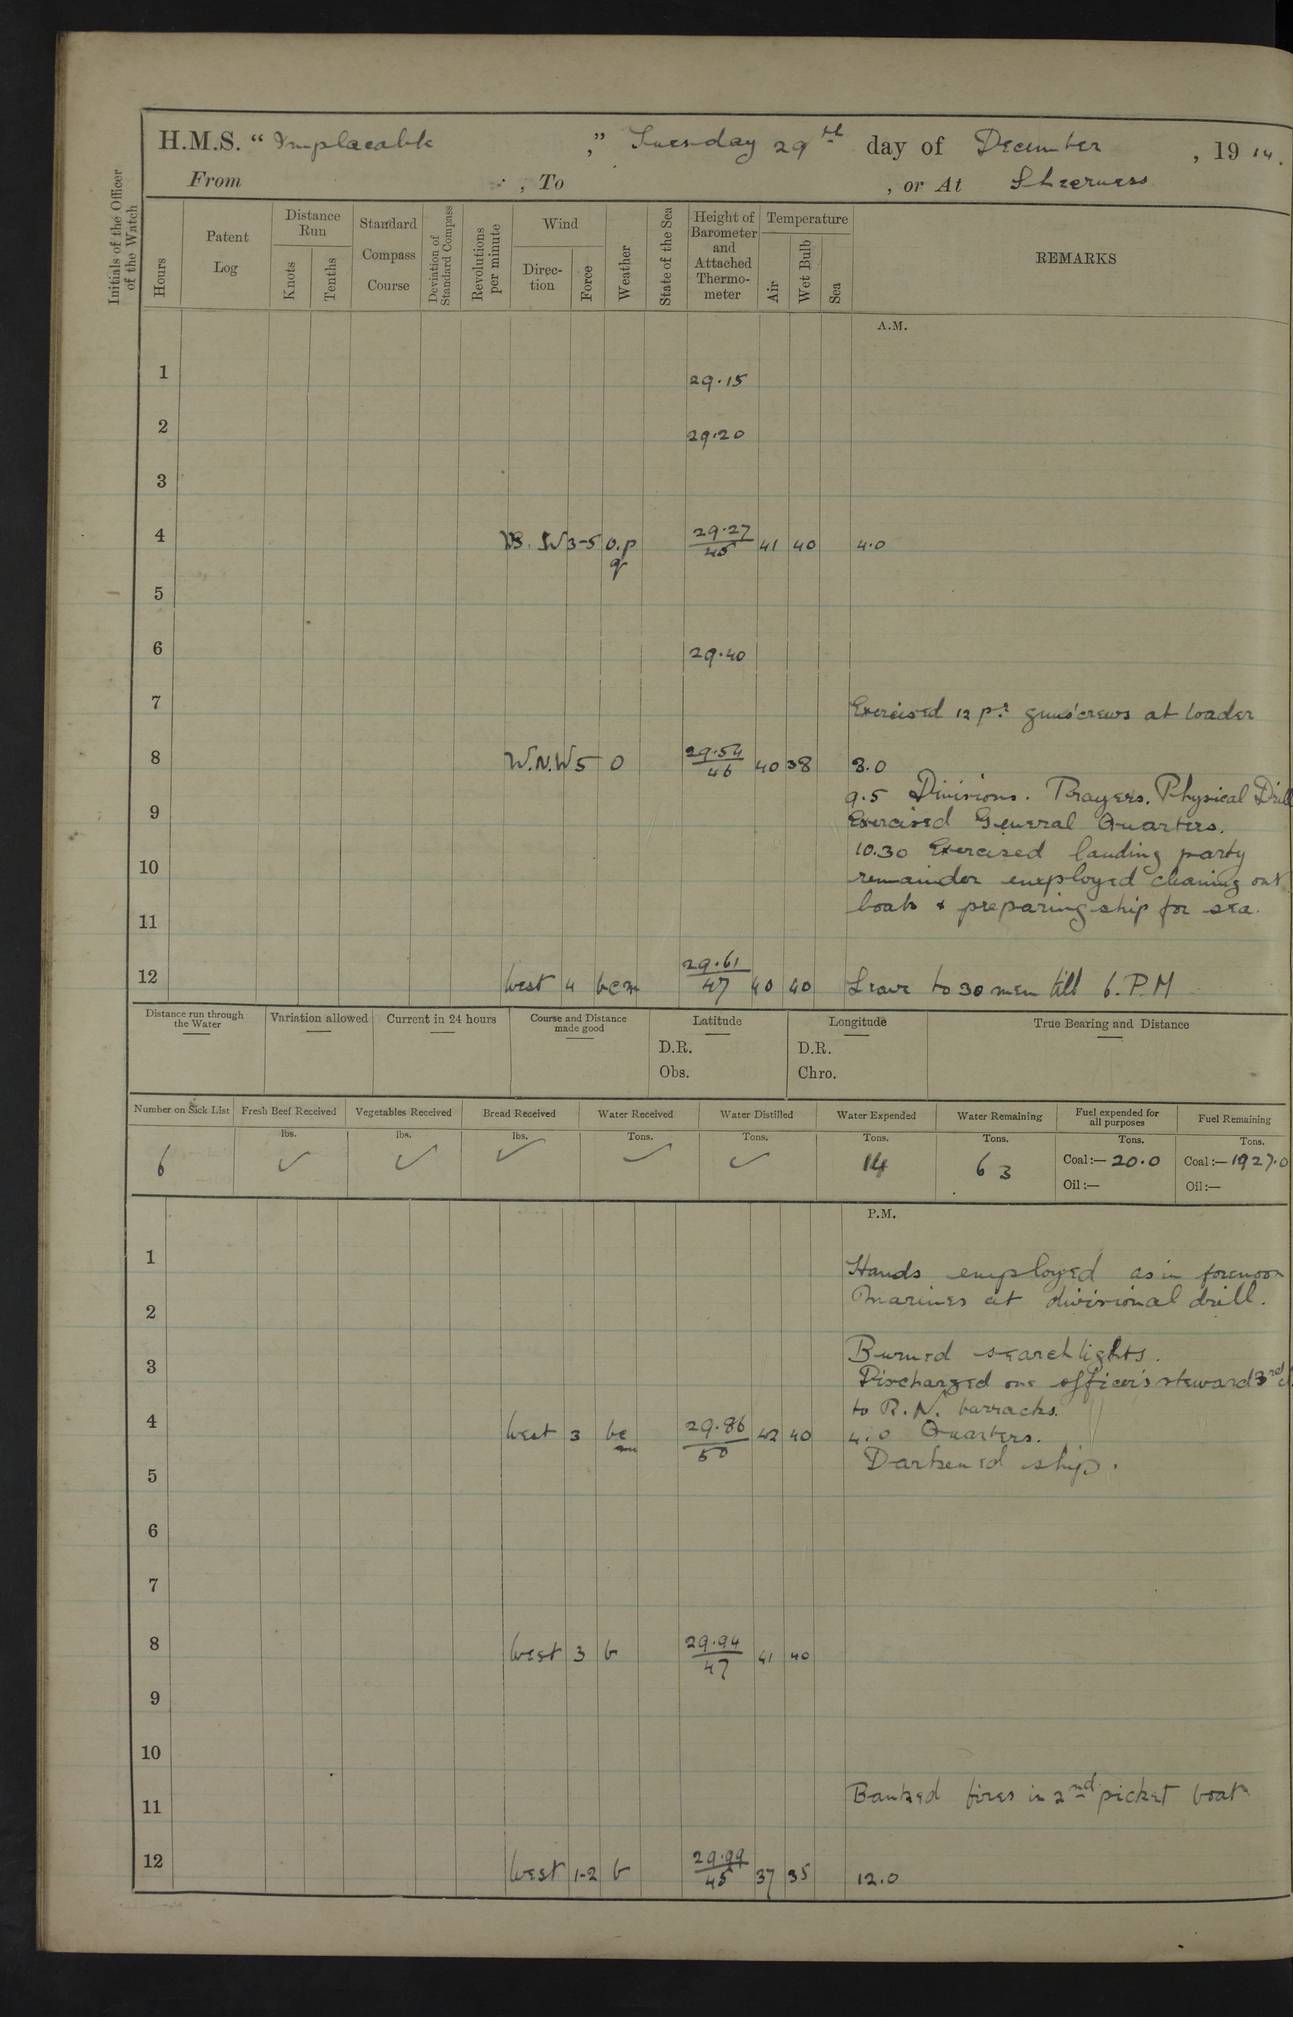 H.M.S. “ Implacable ,” Tuesday 29th day of December , 1914.
From , To , or At Sheerness
Initials of the Officer of the Watch
Hours
Patent Log
Distance Run
Knots
Tenths
Standard Compass Course
Deviation of Standard Compass
Revolutions per minute
Wind
Direc-tion
Force
Weather
State of the Sea
Height of Barometer and Attached Thermo-meter
Temperature
Air
Wet Bulb
Sea
REMARKS
A.M.
1 29.15
2 29.20
3
4 3-5 o.p q 29.27 45 41 40 4.0
5
6 29.40
7 Exercised 12 pr guns' crews at loader
8 W.N.W 5 O 29.54 46 40 38 8.0
9.5 Divisions. Prayers. Physical Drill
9 Exercised General Quarters.
10.30 Exercised landing party
10 remainder employed cleaning out
boats & preparing ship for sea.
11
12 West 4 bcm 29.61 47 40 40 Leave to 30 men till 6. P.M
Distance run through the Water
Variation allowed
Current in 24 hours
Course and Distance made good
Latitude
D.R.
Obs.
Longitude
D.R.
Chro.
True Bearing and Distance
Number on Sick List
Fresh Beef Received
Vegetables Received
Bread Received
Water Received
Water Distilled
Water Expended
Water Remaining
Fuel expended for all purposes
Fuel Remaining
lbs. lbs. lbs. Tons. Tons. Tons. Tons. Tons. Tons.
6 ✓ ✓ ✓ ✓ ✓ 14 63 Coal:— 20.0 Coal:— 1927.0
Oil:— Oil:—
P.M.
1 Hands employed as in forenoon
2 Marines at divisional drill.
3 Burned searchlights.
Discharged one officer's steward 3rd cl
to R.N. barracks.
4 West 3 bc m 29.86 50 42 40 4.0 Quarters.
Darkened ship.
5
6
7
8 West 3 b 29.94 47 41 40
9
10
11 Banked fires in 2nd picket boat
12 West 1-2 b 29.99 45 37 35 12.0